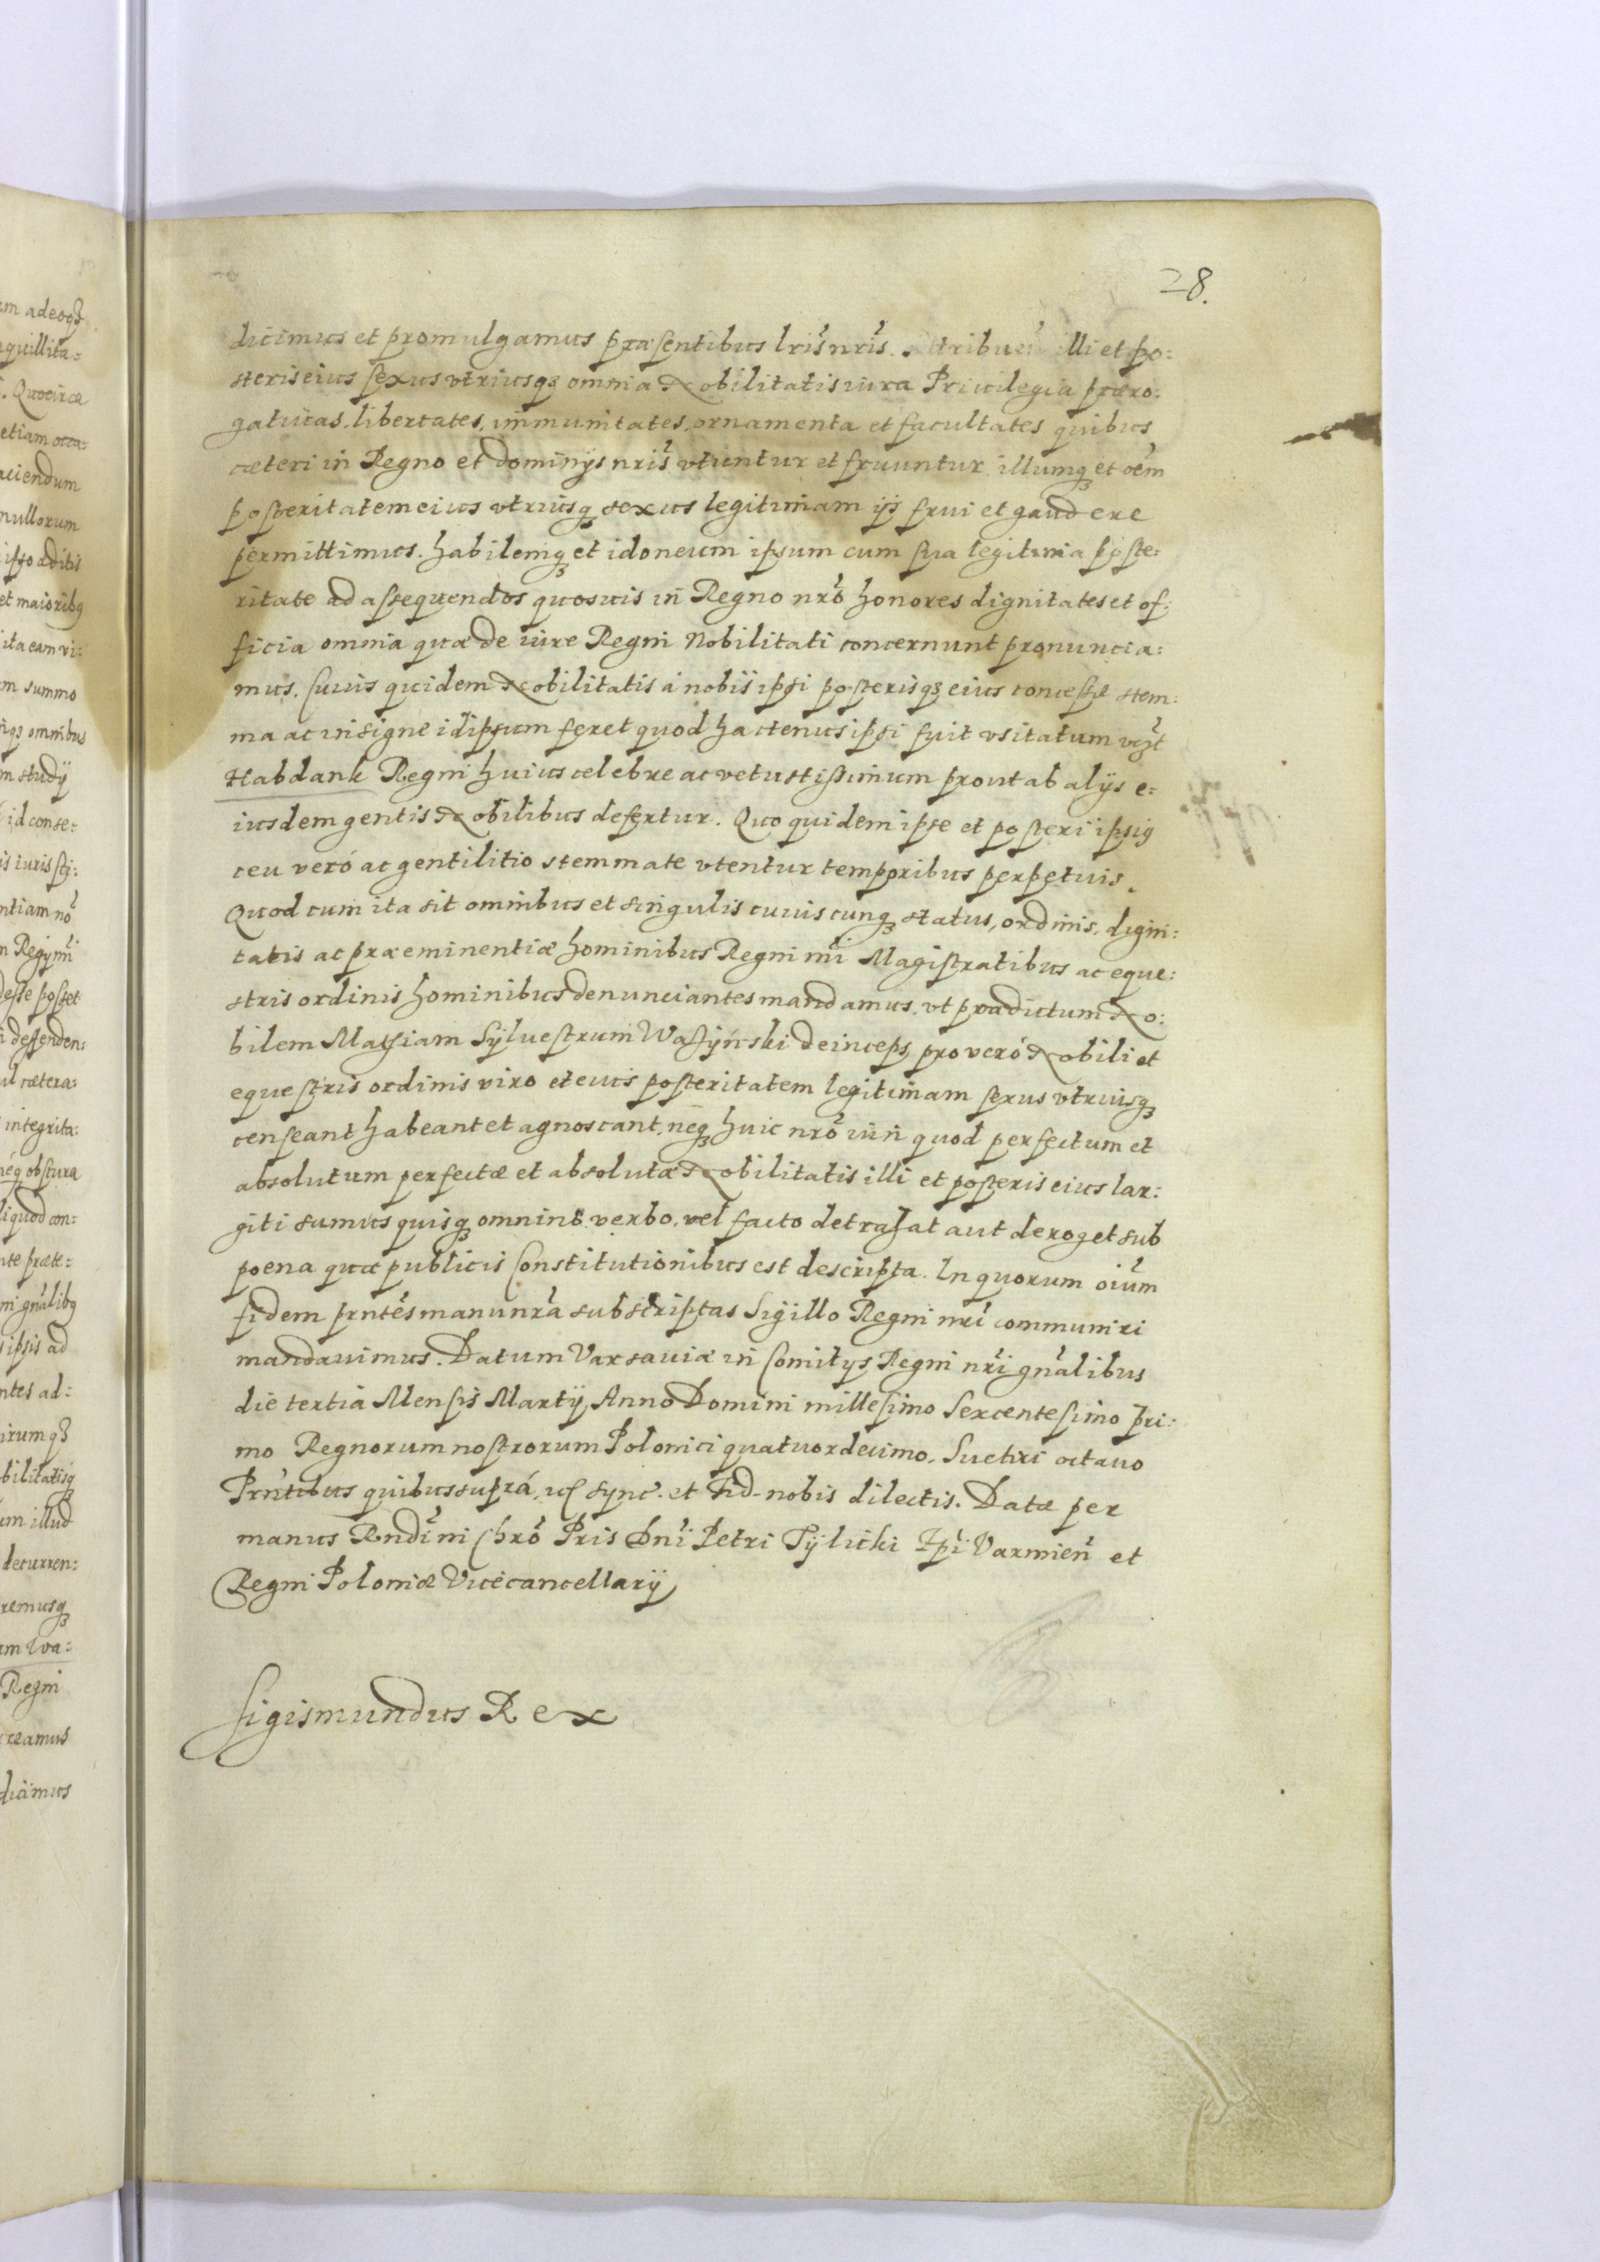 28.
dicimus et promulgamus præsentibus lris nris. Attribuen illi et po:
steris eius sexus vtriusq omnia Nobilitatis iura Priuilegia præro:
gatiuas, libertates, immunitates, ornamenta et facultates quibus
cæteri in Regno et dominijs nris vtuntur et fruuntur illumq et oem
posteritatem eius vtriusq sexus legitimam ijs frui et gaudere
permittimus. habilemq et idoneum ipsum cum sua legitima poste:
ritate ad assequendos quosuis in Regno nro honores dignitates et of:
ficia omnia quæ de iure Regni Nobilitati concernunt pronuncia:
mus. Cuius quidem Nobilitatis à nobis ipsi posterisq eius concessæ stem:
ma ac insigne id ipsum feret quod hactenus ipsi fuit vsitatum
Habdank Regni huius celebre ac vetustissimum prout ab alijs e:
iusdem gentis Nobilibus defertur. Quo quidem ipse et posteri ipsius
ceu veró ac gentilitio stemmate vtentur temporibus perpetuis.
Quod cum ita sit omnibus et singulis cuiuscunq status, ordinis, digni:
tatis ac præeminentiæ hominibus Regni nri Magistratibus ac eque:
stris ordinis hominibus denunciantes mandamus. vt prædictum No:
bilem Mathiam Syluestrum Wasÿński deinceps pro veró Nobili et
equestris ordinis viro et eius posteritatem legitimam sexus vtriusq
censeant habeant et agnoscant, neq huic nro iuri quod perfectum et
absolutum perfectæ et absolutæ Nobilitatis illi et posteris eius lar:
giti sumus quisq omnino verbo, vel facto detrahat aut deroget sub
poena quæ publicis Constitutionibus est descripta. In quorum oium
fidem prntes manu nra subscriptas Sigillo Regni nri communiri
mandauimus. Datum Varsauiæ in Comitijs Regni nri gnalibus
die tertia Mensis Martij Anno Domini millesimo Sexcentesimo pri:
mo Regnorum nostrorum Polonici quatuordecimo, Suetici octauo
Prntibus quibus suprá, sync. et fid. nobis dilectis. Datæ per
manus Rndi in Chro Pris Dni Petri Tÿlicki Epi Varmien et
Regni Poloniæ Vicecancellarij
Sigismundus Rex